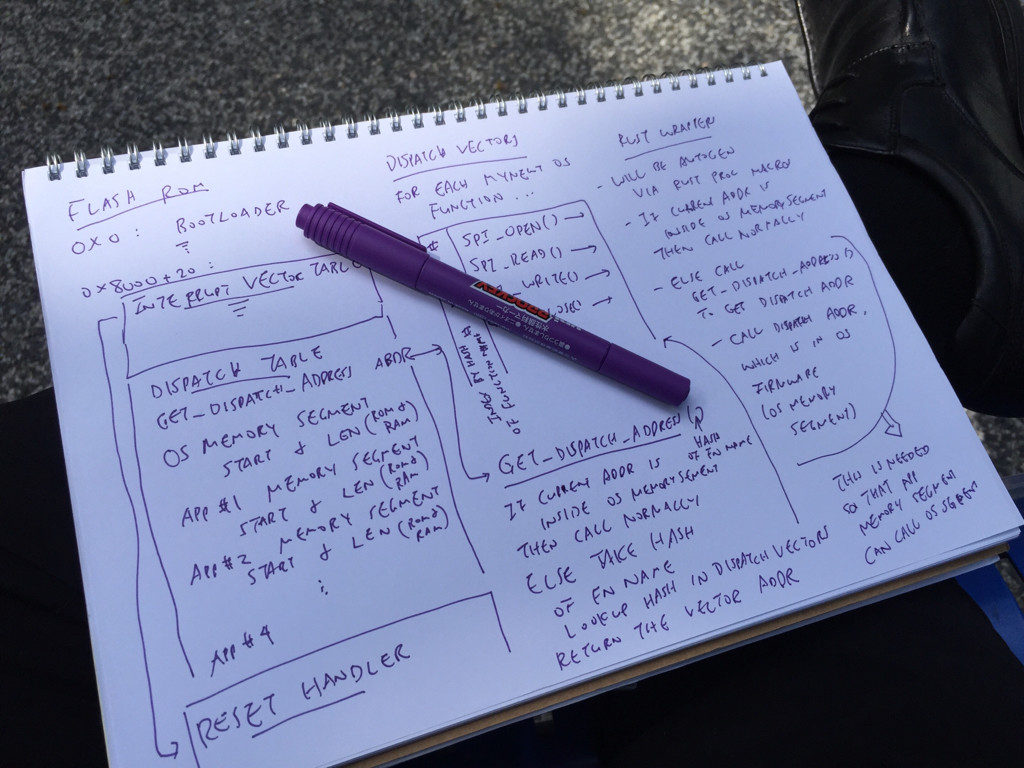 FLASH ROM
0x0: BOOTLOADER
0x8000+20:
INTERRUPT VECTOR TABLE
DISPATCH TABLE
GET_DISPATCH_ADDRESS ADDR
OS MEMORY SEGMENT
START & LEN (ROM & RAM)
APP #1 MEMORY SEGMENT
START & LEN (ROM & RAM)
APP #2 MEMORY SEGMENT
START & LEN (ROM & RAM)
⋮
APP #4
RESET HANDLER
DISPATCH VECTORS
FOR EACH MYNEWT OS
FUNCTION...
#
SPI_OPEN() →
SPI_READ() →
_WRITE() →
OSE() →
INDEX BY HASH
OF FUNCTION NAME
GET_DISPATCH_ADDRESS()
HASH
OF FN NAME
IF CURRENT ADDR IS
INSIDE OS MEMORY SEGMENT
THEN CALL NORMALLY
ELSE TAKE HASH
OF FN NAME
LOOKUP HASH IN DISPATCH VECTORS
RETURN THE VECTOR ADDR
RUST WRAPPER
- WILL BE AUTOGEN
VIA RUST PROC MACRO
- IF CURRENT ADDR IS
INSIDE OS MEMORY SEGMENT
THEN CALL NORMALLY
- ELSE CALL
GET_DISPATCH_ADDRESS()
TO GET DISPATCH ADDR
- CALL DISPATCH ADDR,
WHICH IS IN OS
FIRMWARE
(OS MEMORY
SEGMENT)
THIS IS NEEDED
SO THAT APP
MEMORY SEGMENT
CAN CALL OS SEGMENT